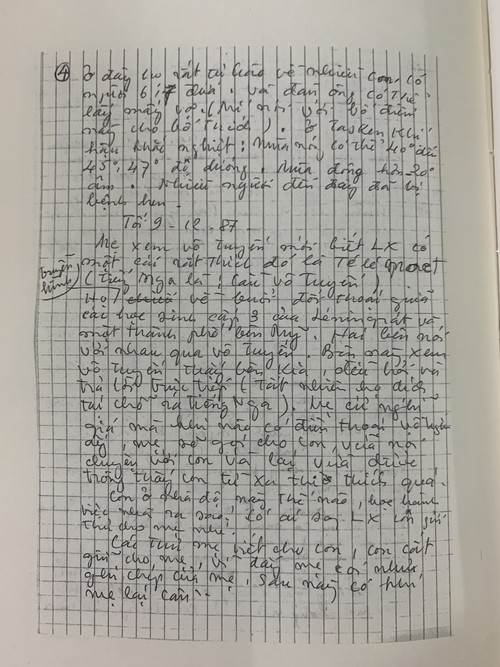 ④ ở đây họ rất tự hào về nhiều con, có
người 6, 7 đứa. Và đàn ông có thể
lấy mấy vợ. (Mẹ nói với bố điều
này cho bố thích). Ở Tasken khí
hậu khắc nghiệt: Mùa nóng có thể 40° đến
45°, 47° độ dương. Mùa đông hơn 20°
âm. Nhiều người đến đây đã bị
bệnh hen.
Tối 9-12-87
Mẹ xem vô tuyến mới biết LX có
một cái rất thích đó là Tê lê
truyền hình
(tiếng Nga là: Cầu vô tuyến)
Họ về buổi đối thoại giữa
các học sinh cấp 3 của Lêningrát và
một thành phố bên Mỹ. Hai bên nói
với nhau qua vô tuyến. Bên này xem
vô tuyến thấy bên kia, đều hỏi và
trả lời trực tiếp (Tất nhiên họ dịch
tại chỗ ra tiếng Nga). Mẹ cứ nghĩ
giá mà khi nào có điện thoại vô tuyến
ấy, mẹ sẽ gọi cho con, vừa nói
chuyện với con và lại vừa được
trông thấy con từ xa thì thích quá.
Con ở nhà độ này thế nào, học hành
việc nhà ra sao? Có ai sang LX con gửi
thư cho mẹ nhé.
Các thư mẹ viết cho con, con cất
giữ cho mẹ, vì đấy mẹ coi như
ghi chép của mẹ, sau này có khi
mẹ lại cần...